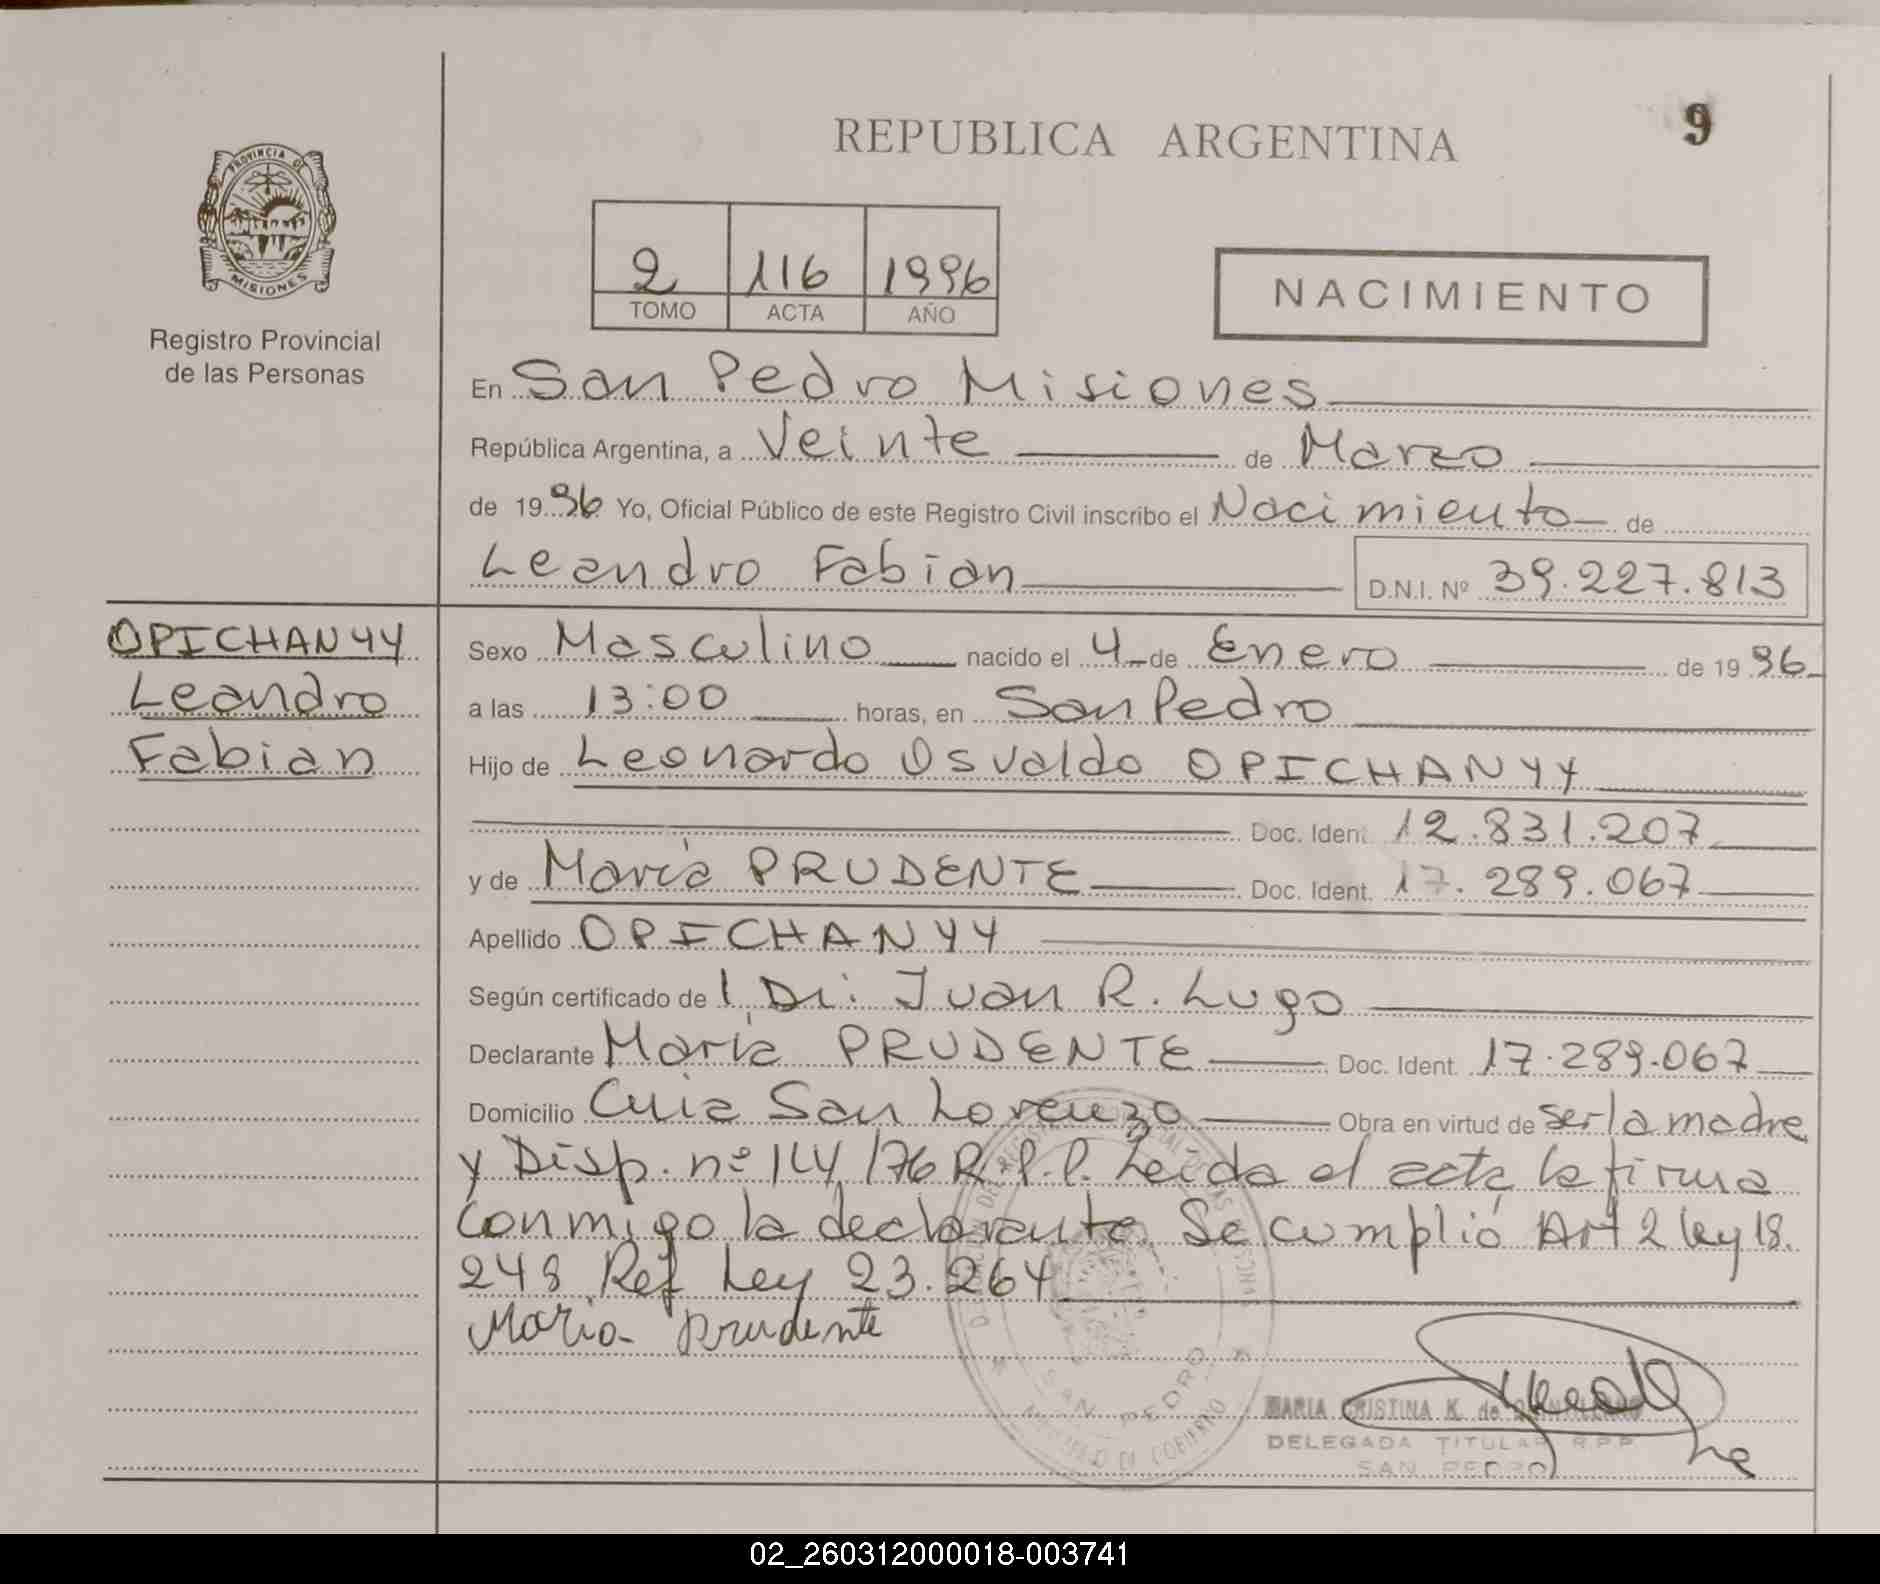 9
REPUBLICA ARGENTINA
PROVINCIA DE
MISIONES
Registro Provincial
de las Personas
2 116 1996
TOMO ACTA AÑO
NACIMIENTO
En San Pedro Misiones
República Argentina, a Veinte de Marzo
de 1996 Yo, Oficial Público de este Registro Civil inscribo el Nacimiento de
Leandro Fabian D.N.I. Nº 39.227.813
OPICHANYY
Leandro
Fabian
Sexo Masculino nacido el 4 de Enero de 1996
a las 13:00 horas, en San Pedro
Hijo de Leonardo Osvaldo OPICHANYY
Doc. Ident. 12.831.207
y de María PRUDENTE Doc. Ident. 17.289.067
Apellido OPICHANYY
Según certificado de Juan R. Lugo
Declarante María PRUDENTE Doc. Ident. 17.289.067
Domicilio San Lorenzo Obra en virtud de ser la madre
y Disp. nº 114/76 R.P.P. Leida el acta la firma
conmigo la declarante. Se cumplió Art 2 ley 18.
248 Ref Ley 23.264
Maria prudente
SAN PEDRO
MARIA CRISTINA K. de
DELEGADA TITULAR R.P.P.
SAN PEDRO
02_260312000018-003741